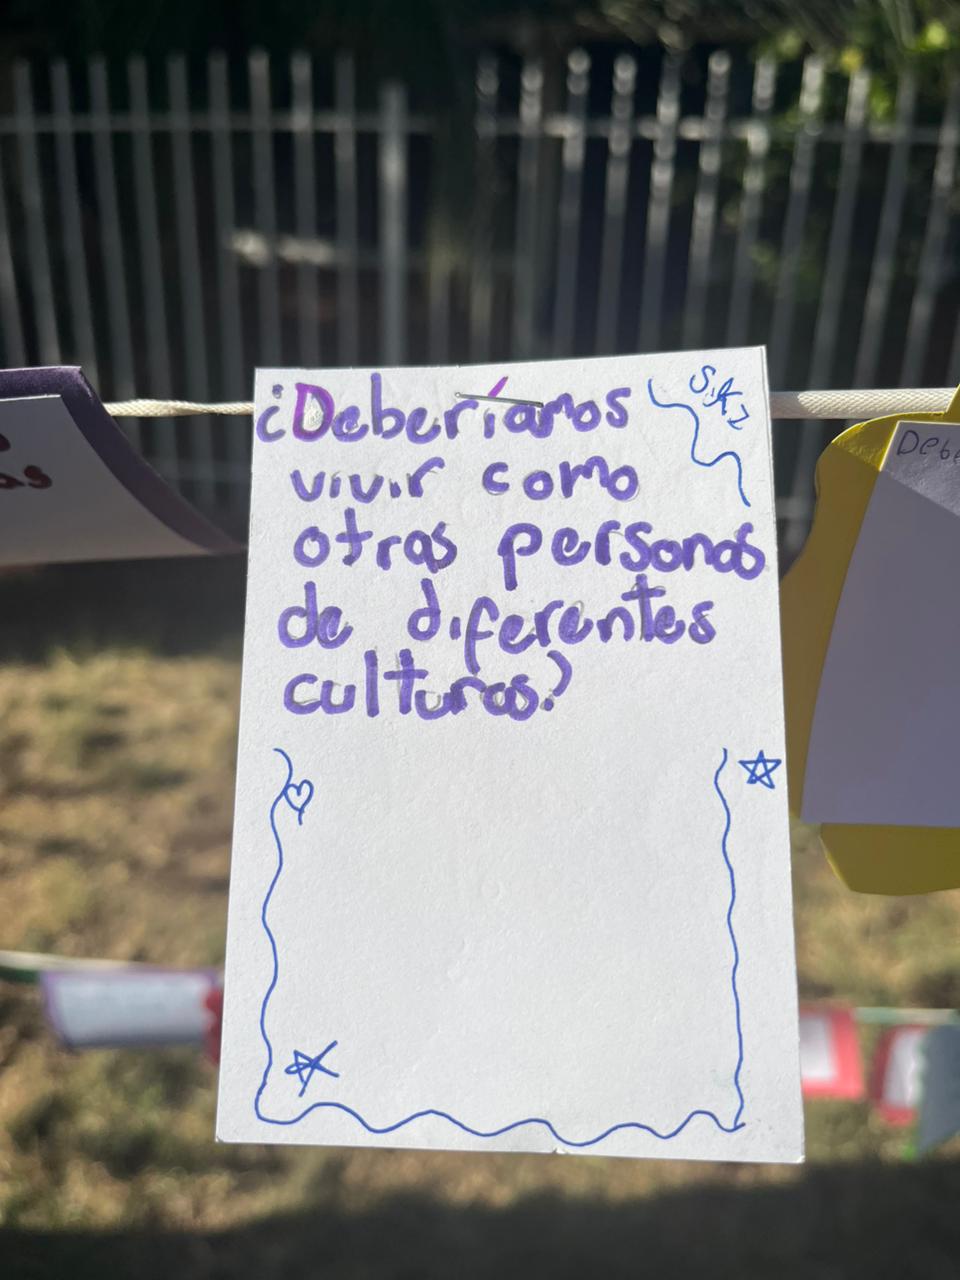 ¿Deberíamos
vivir como
otras personas
de diferentes
culturas?
as
Debe